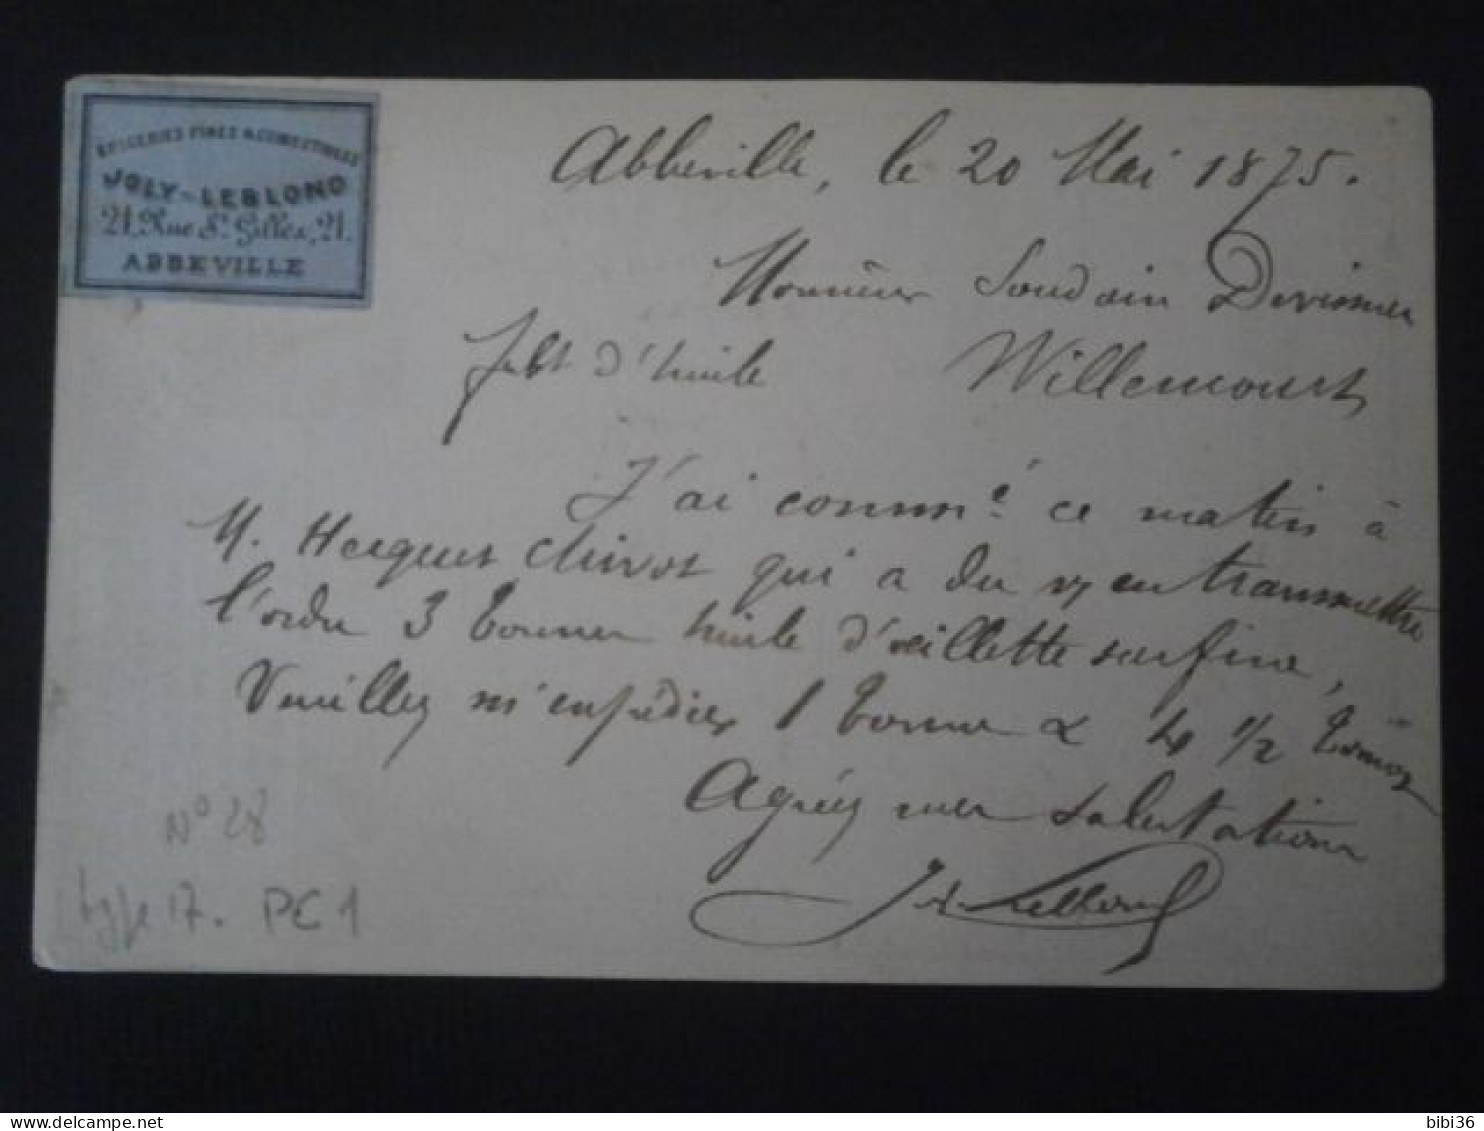 EPICERIES FINES & COMESTIBLES
JOLY-LEBLOND
21, Rue St. Gilles, 21.
ABBEVILLE
Abbeville, le 20 Mai 1875.
Monsieur Soudain Devismes
fabt d'huile Willemourt
J'ai comm.é ce matin à
M. Hecquet Chivot qui a du v/ en transmettre
l'ordre 3 tonnes huile d'oeillette surfine,
Veuillez m'expédier 1 tonne & 4 1/2 tonnes
Agréez mes salutations
J. Leblond
N° 28
type 17. PC 1
bibi36